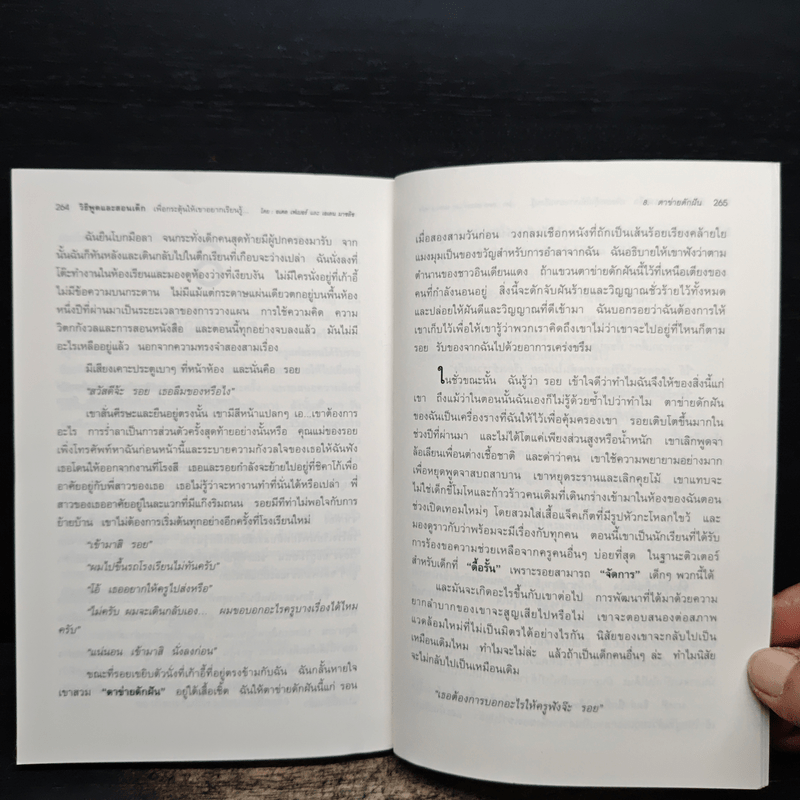 264 วิธีพูดและสอนเด็ก เพื่อกระตุ้นให้เขาอยากเรียนรู้... โดย : อเดล เฟเบอร์ และ เอเลน มาซลิช
ฉันยืนโบกมือลา จนกระทั่งเด็กคนสุดท้ายมีผู้ปกครองมารับ จาก
นั้นฉันก็หันหลังและเดินกลับไปในตึกเรียนที่เกือบจะว่างเปล่า ฉันนั่งลงที่
โต๊ะทำงานในห้องเรียนและมองดูห้องว่างที่เงียบงัน ไม่มีใครนั่งอยู่ที่เก้าอี้
ไม่มีข้อความบนกระดาน ไม่มีแม้แต่กระดาษแผ่นเดียวตกอยู่บนพื้นห้อง
หนึ่งปีที่ผ่านมาเป็นระยะเวลาของการวางแผน การใช้ความคิด ความ
วิตกกังวลและการสอนหนังสือ และตอนนี้ทุกอย่างจบลงแล้ว มันไม่มี
อะไรเหลืออยู่แล้ว นอกจากความทรงจำสองสามเรื่อง
มีเสียงเคาะประตูเบาๆ ที่หน้าห้อง และนั่นคือ รอย
“สวัสดีจ้ะ รอย เธอลืมของหรือไง”
เขาสั่นศีรษะและยืนอยู่ตรงนั้น เขามีสีหน้าแปลกๆ เอ...เขาต้องการ
อะไร การร่ำลาเป็นการส่วนตัวครั้งสุดท้ายอย่างนั้นหรือ คุณแม่ของรอย
เพิ่งโทรศัพท์หาฉันก่อนหน้านี้และระบายความกังวลใจของเธอให้ฉันฟัง
เธอโดนให้ออกจากงานที่โรงสี เธอและรอยกำลังจะย้ายไปอยู่ที่ชิคาโก้เพื่อ
อาศัยอยู่กับพี่สาวของเธอ เธอไม่รู้ว่าจะหางานทำที่นั่นได้หรือเปล่า พี่
สาวของเธออาศัยอยู่ในละแวกที่มีแก๊งริมถนน รอยมีทีท่าไม่พอใจกับการ
ย้ายบ้าน เขาไม่ต้องการเริ่มต้นทุกอย่างอีกครั้งที่โรงเรียนใหม่
“เข้ามาสิ รอย”
“ผมไปขึ้นรถโรงเรียนไม่ทันครับ”
“โอ้ เธออยากให้ครูไปส่งหรือ”
“ไม่ครับ ผมจะเดินกลับเอง... ผมขอบอกอะไรครูบางเรื่องได้ไหม
ครับ”
“แน่นอน เข้ามาสิ นั่งลงก่อน”
ขณะที่รอยเขยิบตัวนั่งที่เก้าอี้ที่อยู่ตรงข้ามกับฉัน ฉันกลั้นหายใจ
เขาสวม “ตาข่ายดักฝัน” อยู่ใต้เสื้อเชิ้ต ฉันให้ตาข่ายดักฝันนี้แก่ รอน
8. ตาข่ายดักฝัน 265
เมื่อสองสามวันก่อน วงกลมเชือกหนังที่ถักเป็นเส้นร้อยเรียงคล้ายใย
แมงมุมเป็นของขวัญสำหรับการอำลาจากฉัน ฉันอธิบายให้เขาฟังว่าตาม
ตำนานของชาวอินเดียนแดง ถ้าแขวนตาข่ายดักฝันนี้ไว้ที่เหนือเตียงของ
คนที่กำลังนอนอยู่ สิ่งนี้จะดักจับฝันร้ายและวิญญาณชั่วร้ายไว้ทั้งหมด
และปล่อยให้ฝันดีและวิญญาณที่ดีเข้ามา ฉันบอกรอยว่าฉันต้องการให้
เขาเก็บไว้เพื่อให้เขารู้ว่าพวกเราคิดถึงเขาไม่ว่าเขาจะไปอยู่ที่ไหนก็ตาม
รอย รับของจากฉันไปด้วยอาการเคร่งขรึม
ในชั่วขณะนั้น ฉันรู้ว่า รอย เข้าใจดีว่าทำไมฉันจึงให้ของสิ่งนี้แก่
เขา ถึงแม้ว่าในตอนนั้นฉันเองก็ไม่รู้ด้วยซ้ำไปว่าทำไม ตาข่ายดักฝัน
ของฉันเป็นเครื่องรางที่ฉันให้ไว้เพื่อคุ้มครองเขา รอยเติบโตขึ้นมากใน
ช่วงปีที่ผ่านมา และไม่ได้โตแค่เพียงส่วนสูงหรือน้ำหนัก เขาเลิกพูดจา
ล้อเลียนเพื่อนต่างเชื้อชาติ และด่าว่าคน เขาใช้ความพยายามอย่างมาก
เพื่อหยุดพูดจาสบถสาบาน เขาหยุดระรานและเลิกคุยโม้ เขาแทบจะ
ไม่ใช่เด็กขี้โมโหและก้าวร้าวคนเดิมที่เดินกร่างเข้ามาในห้องของฉันตอน
ช่วงเปิดเทอมใหม่ๆ โดยสวมใส่เสื้อแจ็คเก็ตที่มีรูปหัวกะโหลกไขว้ และ
มองดูราวกับว่าพร้อมจะมีเรื่องกับทุกคน ตอนนี้เขาเป็นนักเรียนที่ได้รับ
การร้องขอความช่วยเหลือจากครูคนอื่นๆ บ่อยที่สุด ในฐานะติวเตอร์
สำหรับเด็กที่ “ดื้อรั้น” เพราะรอยสามารถ “จัดการ” เด็กๆ พวกนี้ได้
และมันจะเกิดอะไรขึ้นกับเขาต่อไป การพัฒนาที่ได้มาด้วยความ
ยากลำบากของเขาจะสูญเสียไปหรือไม่ เขาจะตอบสนองต่อสภาพ
แวดล้อมใหม่ที่ไม่เป็นมิตรได้อย่างไรกัน นิสัยของเขาจะกลับไปเป็น
เหมือนเดิมไหม ทำไมจะไม่ล่ะ แล้วถ้าเป็นเด็กคนอื่นๆ ล่ะ ทำไมนิสัย
จะไม่กลับไปเป็นเหมือนเดิม
“เธอต้องการบอกอะไรให้ครูฟังจ๊ะ รอย”